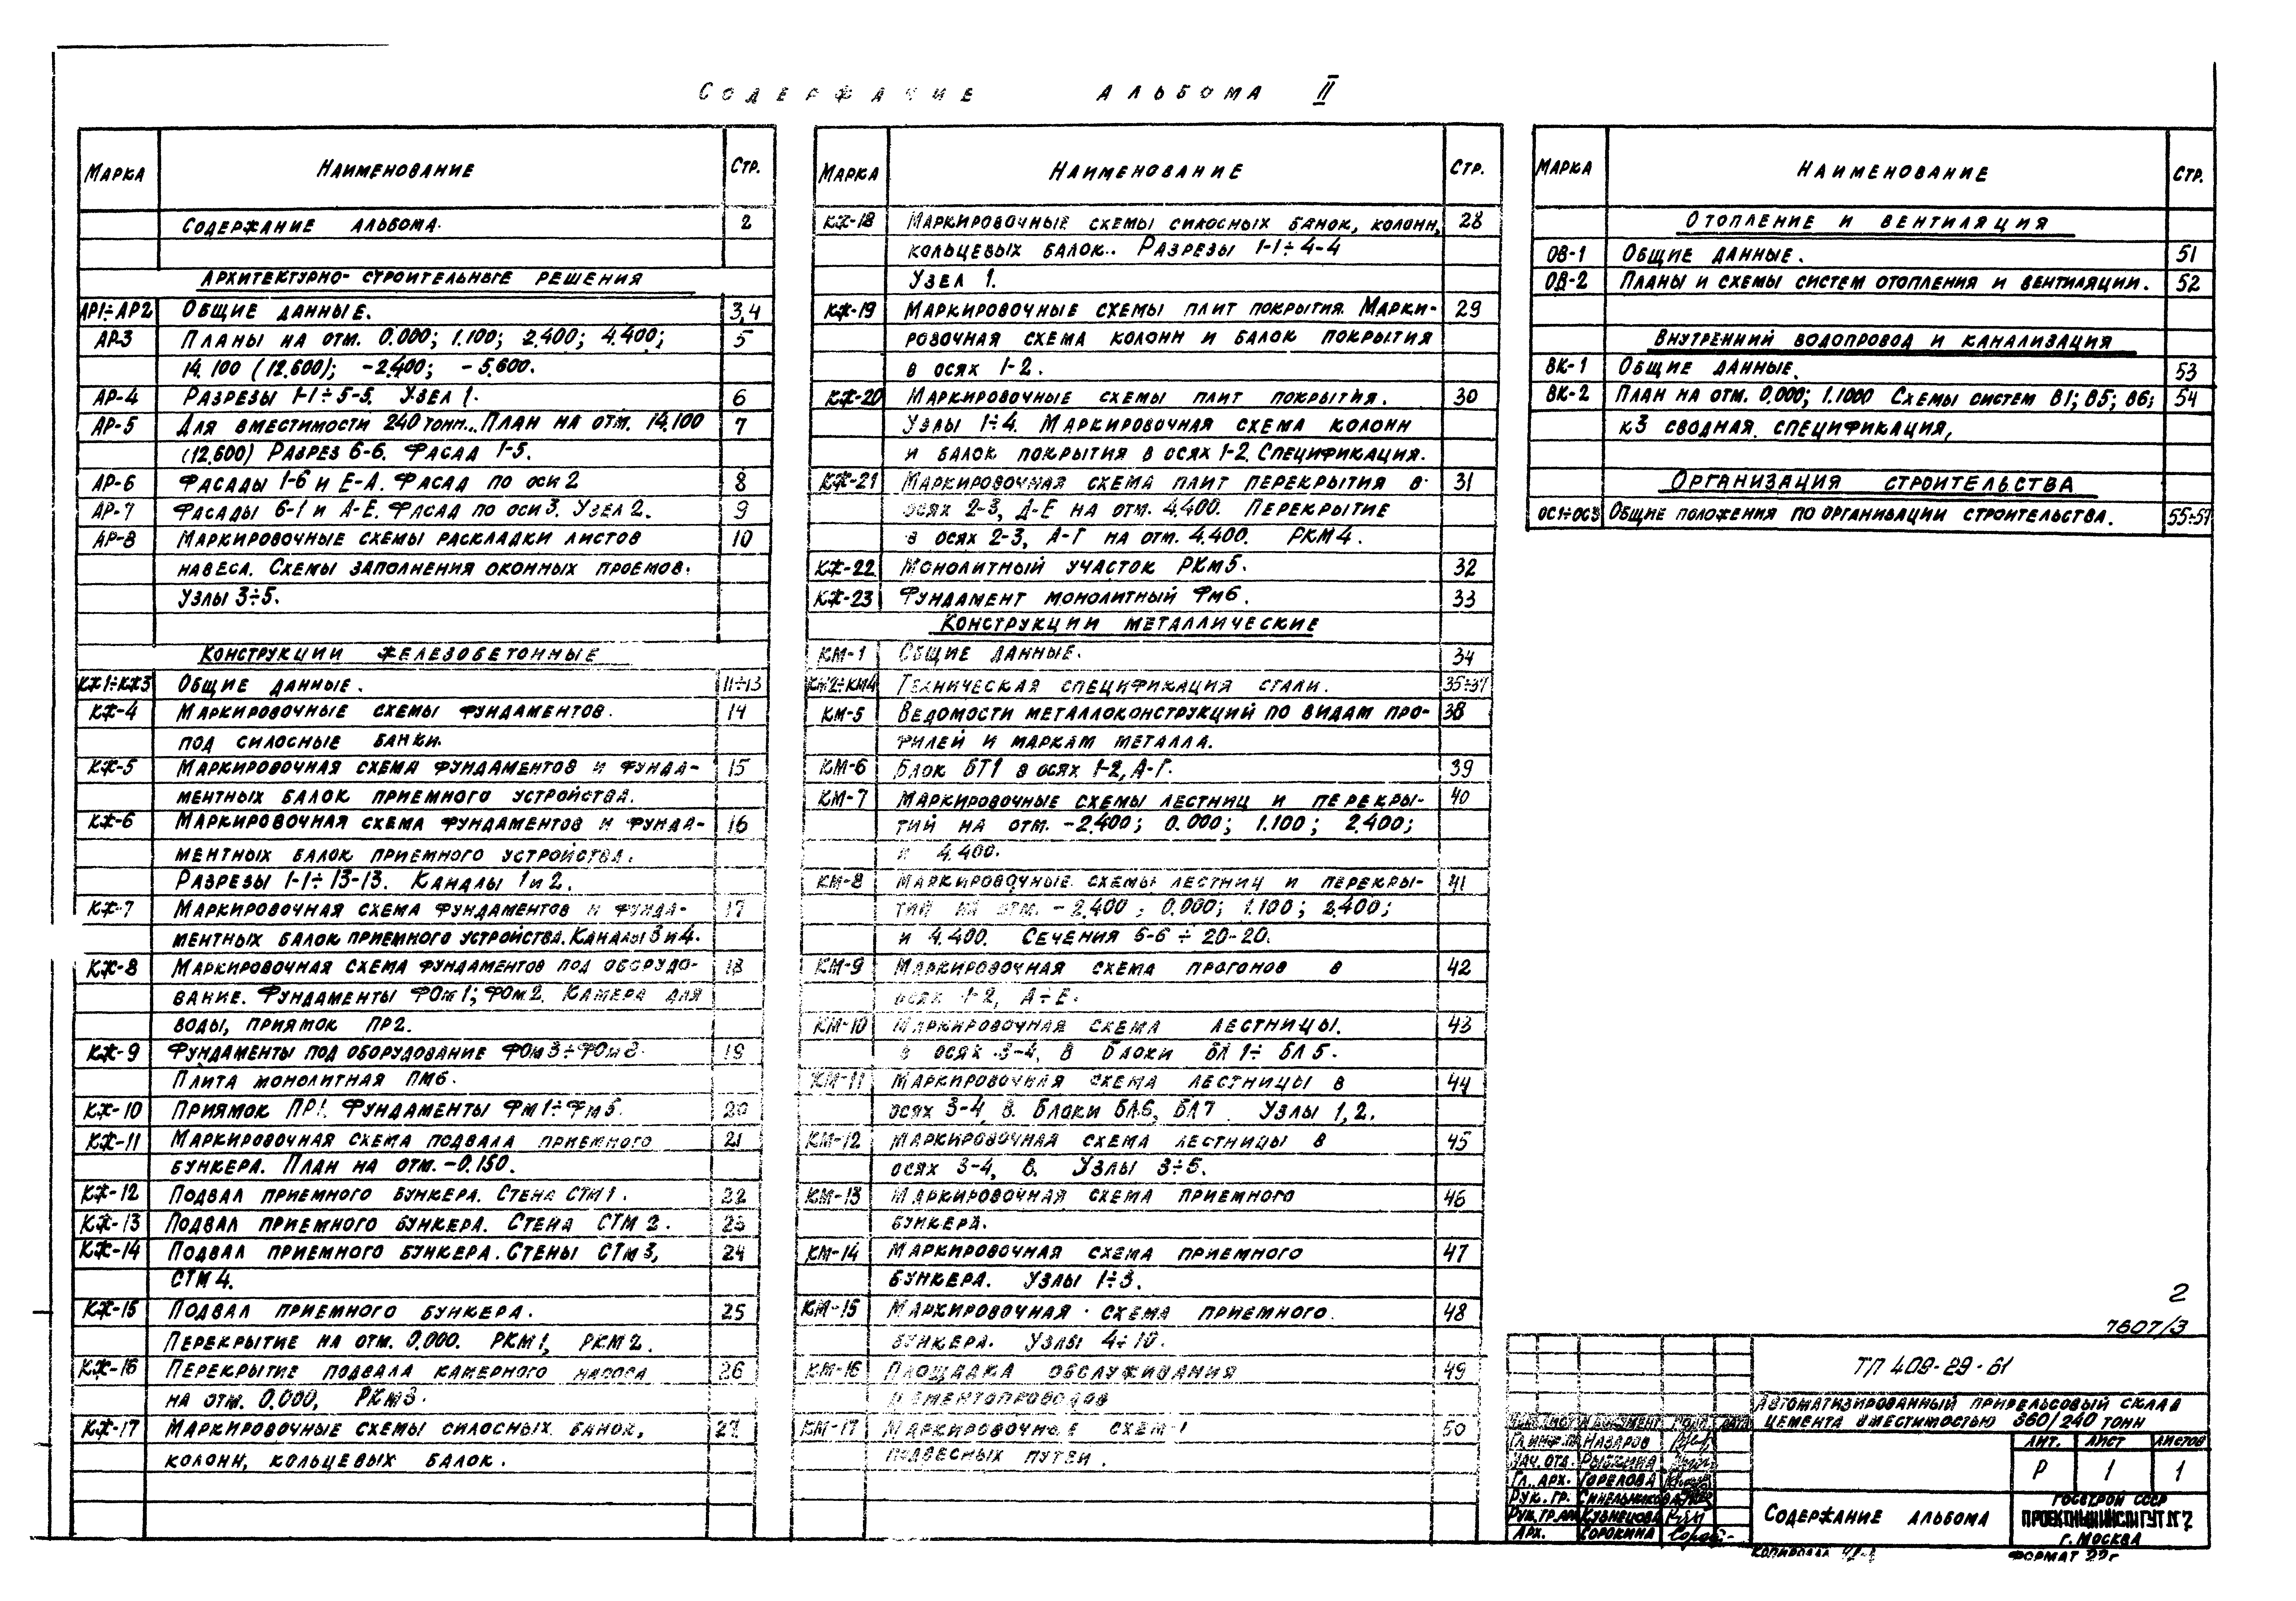 СОДЕРЖАНИЕ АЛЬБОМА II
МАРКА НАИМЕНОВАНИЕ СТР.
СОДЕРЖАНИЕ АЛЬБОМА. 2
АРХИТЕКТУРНО-СТРОИТЕЛЬНЫЕ РЕШЕНИЯ
АР1÷АР2 ОБЩИЕ ДАННЫЕ. 3,4
АР-3 ПЛАНЫ НА ОТМ. 0.000; 1.100; 2.400; 4.400; 5
14.100 (12.600); -2.400; -5.600.
АР-4 РАЗРЕЗЫ 1-1÷5-5. УЗЕЛ 1. 6
АР-5 ДЛЯ ВМЕСТИМОСТИ 240 ТОНН. ПЛАН НА ОТМ. 14.100 7
(12.600) РАЗРЕЗ 6-6. ФАСАД 1-5.
АР-6 ФАСАДЫ 1-6 И Е-А. ФАСАД ПО ОСИ 2 8
АР-7 ФАСАДЫ 6-1 И А-Е. ФАСАД ПО ОСИ 3. УЗЕЛ 2. 9
АР-8 МАРКИРОВОЧНЫЕ СХЕМЫ РАСКЛАДКИ ЛИСТОВ 10
НАВЕСА. СХЕМЫ ЗАПОЛНЕНИЯ ОКОННЫХ ПРОЕМОВ.
УЗЛЫ 3÷5.
КОНСТРУКЦИИ ЖЕЛЕЗОБЕТОННЫЕ
КЖ1÷КЖ3 ОБЩИЕ ДАННЫЕ. 11÷13
КЖ-4 МАРКИРОВОЧНЫЕ СХЕМЫ ФУНДАМЕНТОВ. 14
ПОД СИЛОСНЫЕ БАНКИ.
КЖ-5 МАРКИРОВОЧНАЯ СХЕМА ФУНДАМЕНТОВ И ФУНДА- 15
МЕНТНЫХ БАЛОК ПРИЕМНОГО УСТРОЙСТВА.
КЖ-6 МАРКИРОВОЧНАЯ СХЕМА ФУНДАМЕНТОВ И ФУНДА- 16
МЕНТНЫХ БАЛОК ПРИЕМНОГО УСТРОЙСТВА.
РАЗРЕЗЫ 1-1÷13-13. КАНАЛЫ 1 И 2.
КЖ-7 МАРКИРОВОЧНАЯ СХЕМА ФУНДАМЕНТОВ И ФУНДА- 17
МЕНТНЫХ БАЛОК ПРИЕМНОГО УСТРОЙСТВА. КАНАЛЫ 3 И 4.
КЖ-8 МАРКИРОВОЧНАЯ СХЕМА ФУНДАМЕНТОВ ПОД ОБОРУДО- 18
ВАНИЕ. ФУНДАМЕНТЫ ФОМ1; ФОМ2. КАМЕРА ДЛЯ
ВОДЫ, ПРИЯМОК ПР2.
КЖ-9 ФУНДАМЕНТЫ ПОД ОБОРУДОВАНИЕ ФОМ3÷ФОМ8. 19
ПЛИТА МОНОЛИТНАЯ ПМ6.
КЖ-10 ПРИЯМОК ПР1. ФУНДАМЕНТЫ ФМ1÷ФМ5. 20
КЖ-11 МАРКИРОВОЧНАЯ СХЕМА ПОДВАЛА ПРИЕМНОГО 21
БУНКЕРА. ПЛАН НА ОТМ. -0.150.
КЖ-12 ПОДВАЛ ПРИЕМНОГО БУНКЕРА. СТЕНА СТМ1. 22
КЖ-13 ПОДВАЛ ПРИЕМНОГО БУНКЕРА. СТЕНА СТМ2. 23
КЖ-14 ПОДВАЛ ПРИЕМНОГО БУНКЕРА. СТЕНЫ СТМ3, 24
СТМ4.
КЖ-15 ПОДВАЛ ПРИЕМНОГО БУНКЕРА. 25
ПЕРЕКРЫТИЕ НА ОТМ. 0.000. РКМ1, РКМ2.
КЖ-16 ПЕРЕКРЫТИЕ ПОДВАЛА КАМЕРНОГО НАСОСА 26
НА ОТМ. 0.000, РКМ3.
КЖ-17 МАРКИРОВОЧНЫЕ СХЕМЫ СИЛОСНЫХ БАНОК, 27
КОЛОНН, КОЛЬЦЕВЫХ БАЛОК.
МАРКА НАИМЕНОВАНИЕ СТР.
КЖ-18 МАРКИРОВОЧНЫЕ СХЕМЫ СИЛОСНЫХ БАНОК, КОЛОНН, 28
КОЛЬЦЕВЫХ БАЛОК. РАЗРЕЗЫ 1-1÷4-4
УЗЕЛ 1.
КЖ-19 МАРКИРОВОЧНЫЕ СХЕМЫ ПЛИТ ПОКРЫТИЯ. МАРКИ- 29
РОВОЧНАЯ СХЕМА КОЛОНН И БАЛОК ПОКРЫТИЯ
В ОСЯХ 1-2.
КЖ-20 МАРКИРОВОЧНЫЕ СХЕМЫ ПЛИТ ПОКРЫТИЯ. 30
УЗЛЫ 1÷4. МАРКИРОВОЧНАЯ СХЕМА КОЛОНН
И БАЛОК ПОКРЫТИЯ В ОСЯХ 1-2. СПЕЦИФИКАЦИЯ.
КЖ-21 МАРКИРОВОЧНАЯ СХЕМА ПЛИТ ПЕРЕКРЫТИЯ В 31
ОСЯХ 2-3, Д-Е НА ОТМ. 4.400. ПЕРЕКРЫТИЕ
В ОСЯХ 2-3, А-Г НА ОТМ. 4.400. РКМ4.
КЖ-22 МОНОЛИТНЫЙ УЧАСТОК РКМ5. 32
КЖ-23 ФУНДАМЕНТ МОНОЛИТНЫЙ ФМ6. 33
КОНСТРУКЦИИ МЕТАЛЛИЧЕСКИЕ
КМ-1 ОБЩИЕ ДАННЫЕ. 34
КМ2÷КМ4 ТЕХНИЧЕСКАЯ СПЕЦИФИКАЦИЯ СТАЛИ. 35÷37
КМ-5 ВЕДОМОСТИ МЕТАЛЛОКОНСТРУКЦИЙ ПО ВИДАМ ПРО- 38
ФИЛЕЙ И МАРКАМ МЕТАЛЛА.
КМ-6 БЛОК БТ1 В ОСЯХ 1-2, А-Г. 39
КМ-7 МАРКИРОВОЧНЫЕ СХЕМЫ ЛЕСТНИЦ И ПЕРЕКРЫ- 40
ТИЙ НА ОТМ. -2.400; 0.000; 1.100; 2.400;
И 4.400.
КМ-8 МАРКИРОВОЧНЫЕ СХЕМЫ ЛЕСТНИЦ И ПЕРЕКРЫ- 41
ТИЙ НА ОТМ. -2.400; 0.000; 1.100; 2.400;
И 4.400. СЕЧЕНИЯ 6-6÷20-20.
КМ-9 МАРКИРОВОЧНАЯ СХЕМА ПРОГОНОВ В 42
ОСЯХ 1-2, А÷Е.
КМ-10 МАРКИРОВОЧНАЯ СХЕМА ЛЕСТНИЦЫ. 43
В ОСЯХ 3-4, В БЛОКИ БЛ1÷БЛ5.
КМ-11 МАРКИРОВОЧНАЯ СХЕМА ЛЕСТНИЦЫ В 44
ОСЯХ 3-4, В. БЛОКИ БЛ6, БЛ7 УЗЛЫ 1,2.
КМ-12 МАРКИРОВОЧНАЯ СХЕМА ЛЕСТНИЦЫ В 45
ОСЯХ 3-4, В. УЗЛЫ 3÷5.
КМ-13 МАРКИРОВОЧНАЯ СХЕМА ПРИЕМНОГО 46
БУНКЕРА.
КМ-14 МАРКИРОВОЧНАЯ СХЕМА ПРИЕМНОГО 47
БУНКЕРА. УЗЛЫ 1÷3.
КМ-15 МАРКИРОВОЧНАЯ СХЕМА ПРИЕМНОГО 48
БУНКЕРА. УЗЛЫ 4÷10.
КМ-16 ПЛОЩАДКА ОБСЛУЖИВАНИЯ 49
ЦЕМЕНТОПРОВОДОВ
КМ-17 МАРКИРОВОЧНЫЕ СХЕМЫ 50
ПОДВЕСНЫХ ПУТЕЙ.
МАРКА НАИМЕНОВАНИЕ СТР.
ОТОПЛЕНИЕ И ВЕНТИЛЯЦИЯ
ОВ-1 ОБЩИЕ ДАННЫЕ. 51
ОВ-2 ПЛАНЫ И СХЕМЫ СИСТЕМ ОТОПЛЕНИЯ И ВЕНТИЛЯЦИИ. 52
ВНУТРЕННИЙ ВОДОПРОВОД И КАНАЛИЗАЦИЯ
ВК-1 ОБЩИЕ ДАННЫЕ. 53
ВК-2 ПЛАН НА ОТМ. 0.000; 1.1000 СХЕМЫ СИСТЕМ В1; В5; В6; 54
К3 СВОДНАЯ СПЕЦИФИКАЦИЯ,
ОРГАНИЗАЦИЯ СТРОИТЕЛЬСТВА
ОС1÷ОС3 ОБЩИЕ ПОЛОЖЕНИЯ ПО ОРГАНИЗАЦИИ СТРОИТЕЛЬСТВА. 55÷57
2
7607/3
ТП 409-29-61
АВТОМАТИЗИРОВАННЫЙ ПРИРЕЛЬСОВЫЙ СКЛАД
ЦЕМЕНТА ВМЕСТИМОСТЬЮ 360/240 ТОНН
ДАТА
ГЛ.ИНЖ.ПР. НАЗАРОВ
НАЧ. ОТД. РЫБКИНА
ГЛ. АРХ. ГОРЕЛОВА
РУК. ГР. СИНЕЛЬНИКОВА
РУК. ГР. КУЗНЕЦОВА
АРХ. СОРОКИНА
ЛИТ. ЛИСТ ЛИСТОВ
Р 1 1
СОДЕРЖАНИЕ АЛЬБОМА
ГОССТРОЙ СССР
ПРОЕКТНЫЙ ИНСТИТУТ №2
Г. МОСКВА
КОПИРОВАЛ
ФОРМАТ 22г